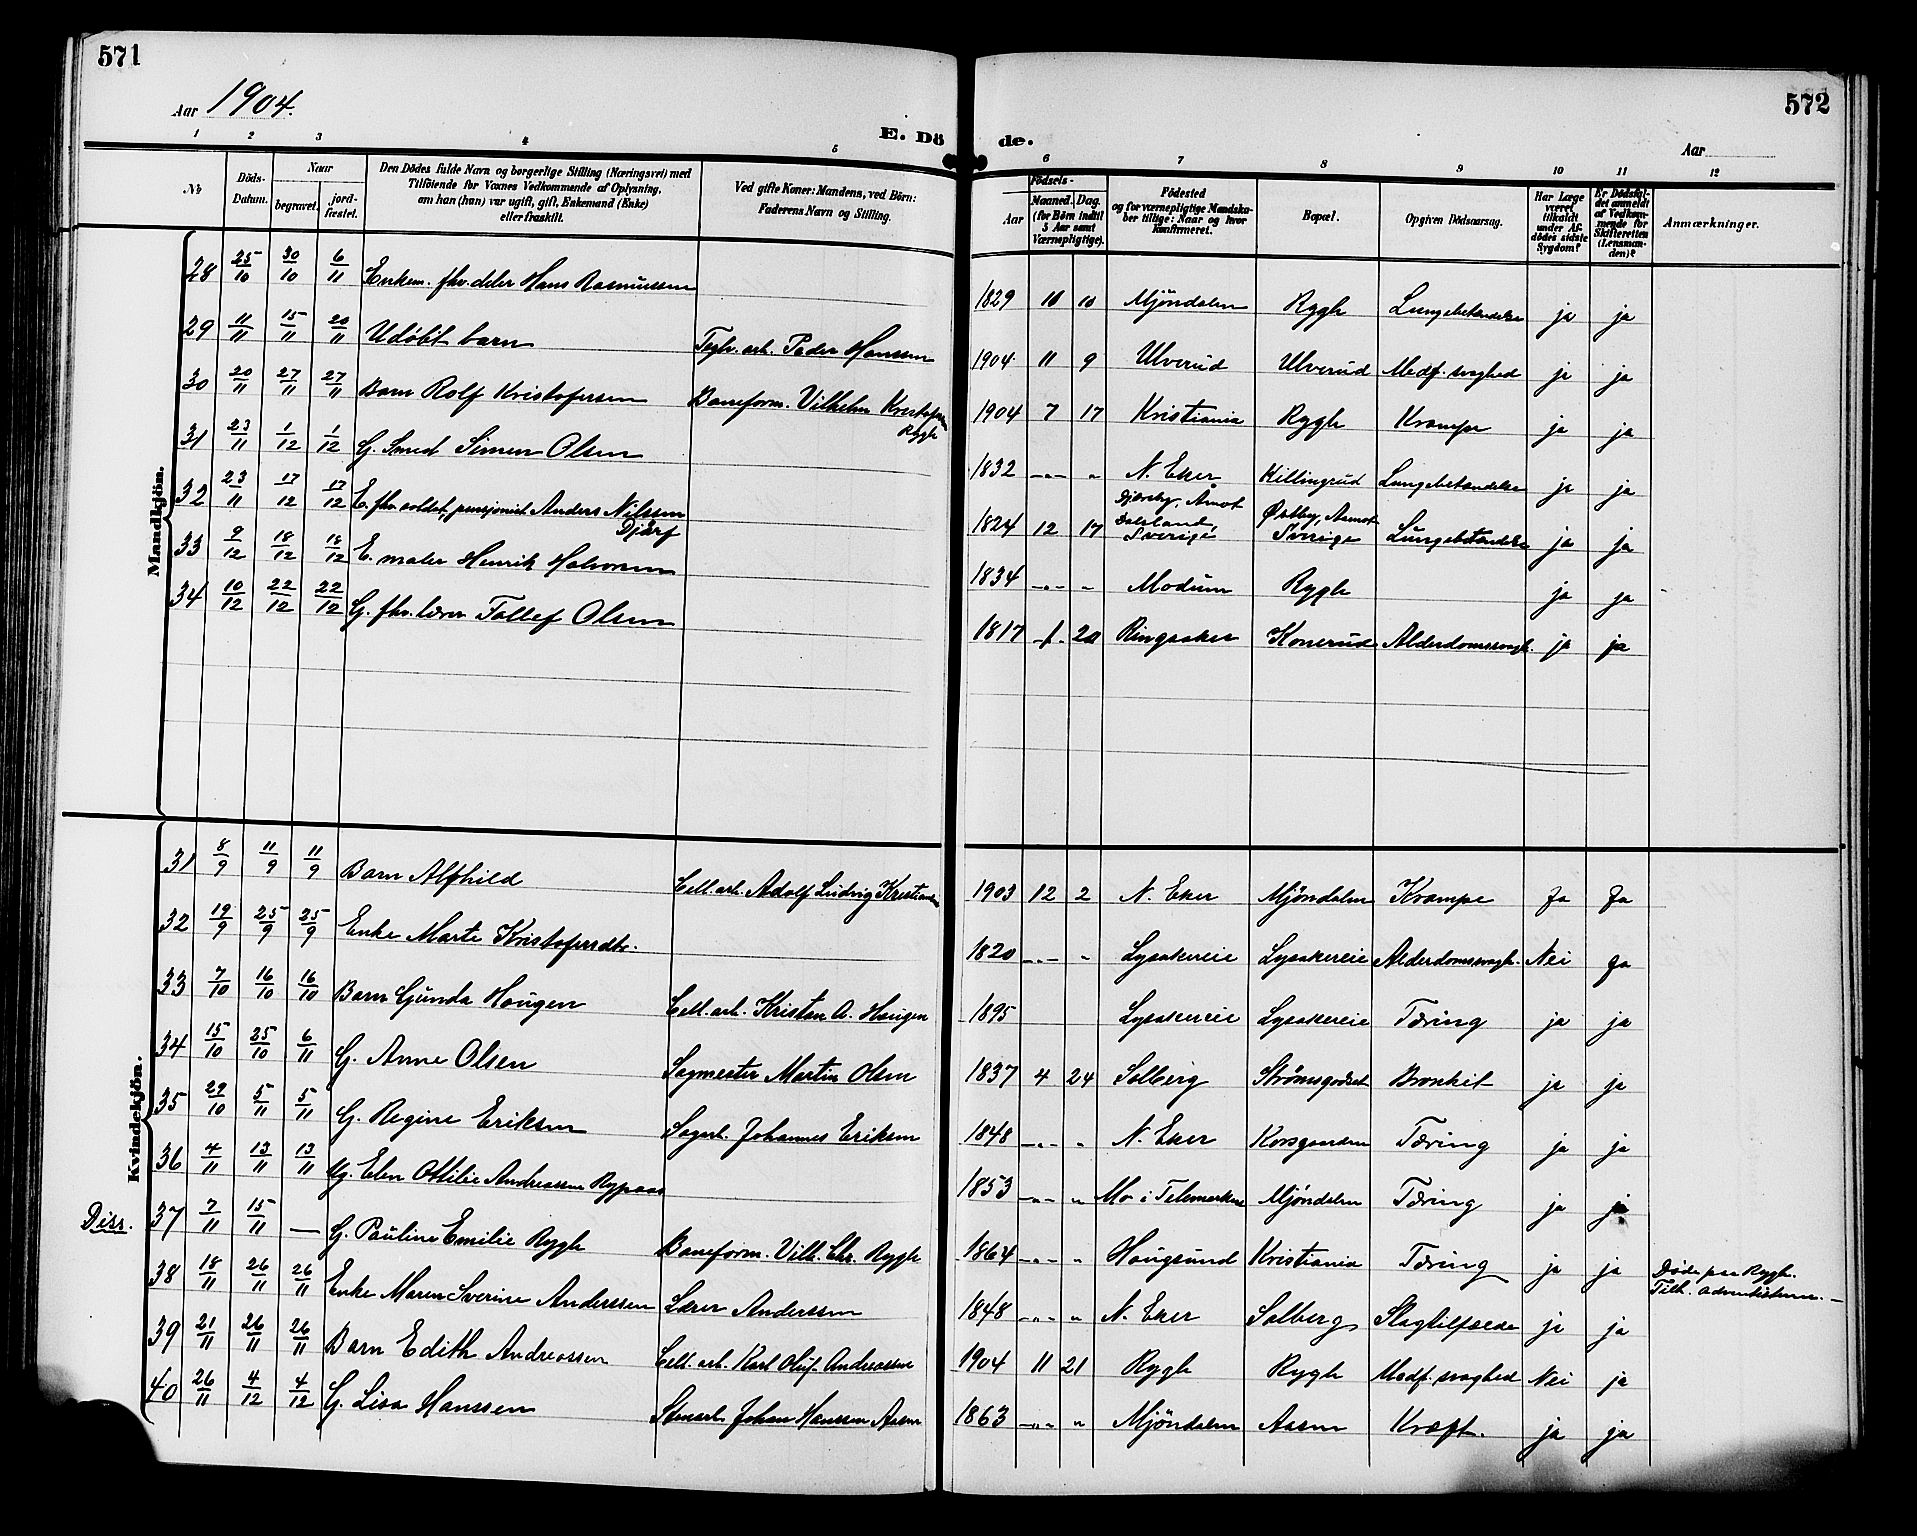 571
Aar 1904.
E. Dö
1 2 3 4 5
No
Döds-Datum.
Naar
begravet.
jord-fæstet.
Den Dödes fulde Navn og borgerlige Stilling (Næringsvei) med
Tilföiende for Voxnes Vedkommende af Oplysning,
om han (hun) var ugift, gift, Enkemand (Enke)
eller fraskilt.
Ved gifte Koner: Mandens, ved Börn:
Faderens Navn og Stilling.
Mandkjön.
28 25/10 30/10 6/11 Enkem. fhv. deler Hans Rasmussen
29 11/11 15/11 20/11 Udöbt barn Teglv. arb. Peder Hanssen
30 20/11 27/11 27/11 Barn Rolf Kristofersen Baneform. Vilhelm Kristofersen
Rygh
31 23/11 1/12 1/12 G. Smed Simen Olsen
32 23/11 17/12 17/12 E. fhv. soldat, pensjonist Anders Nilssen
Djärf
33 9/12 18/12 18/12 E. maler Henrik Halvorsen
34 10/12 22/12 22/12 G. fhv. lærer Tollef Olsen
Kvindekjön.
31 8/9 11/9 11/9 Barn Alfhild Cell. arb. Adolf Ludvig Kristiansen
32 19/9 25/9 25/9 Enke Marte Kristofersdtr.
33 7/10 16/10 16/10 Barn Gunda Haugen Cell. arb. Kristen A. Haugen
34 15/10 25/10 6/11 G. Anne Olsen Sagmester Martin Olsen
35 29/10 5/11 5/11 G. Regine Eriksen Sagarb. Johannes Eriksen
36 4/11 13/11 13/11 Ug. Elen Ottilie Andreassen Rypaas
Diss. 37 7/11 15/11 — G. Pauline Emilie Rygh Baneform. Vilh. Chr. Rygh
38 18/11 26/11 26/11 Enke Maren Sverine Anderssen Lærer Anderssen
39 21/11 26/11 26/11 Barn Edith Andreassen Cell. arb. Karl Oluf Andreassen
40 26/11 4/12 4/12 G. Lisa Hanssen Stenarb. Johan Hanssen Aasen
572
Aar
de.
6 7 8 9 10 11 12
Födsels-
Aar
Maaned. Dag.
(for Börn indtil
5 Aar samt
Værnepligtige).
Födested
og for værnepligtige Mandska-
ber tillige: Naar og hvor
Konfirmeret.
Bopæl.
Opgiven Dödsaarsag.
Har Læge
været
tilkaldt
under Af-
dödes sidste
Sygdom?
Er Dödsfal-
det anmeldt
af Vedkom-
mende for
Skifteretten
(Lensman-
den)?
Anmærkninger.
1829 10 10 Mjöndalen Rygh Lungebetændelse ja ja
1904 11 9 Ulverud Ulverud Medf. svaghed ja ja
1904 7 17 Kristiania Rygh Krampe ja ja
1832 -"- " N. Eker Killingrud Lungebetændelse ja ja
1824 12 17 Åmot Dalsland, Sverige Østby, Aamot Sverige Lungebetændelse ja ja
1834 -"- " Modum Rygh ja ja
1817 1 20 Ringsaker Konerud Alderdomssvagh. ja ja
1903 12 2 N. Eker Mjöndalen Krampe Ja Ja
1820 -"- " Lysakereie Lysakereie Alderdomssvagh. Nei ja
1895 Lysakereie Lysakereie Tæring ja ja
1837 4 24 Solberg Strømsgodset Bronkit ja ja
1848 -"- " N. Eker Korsgaarden Tæring ja ja
1853 -"- " Mo i Telemarken Mjöndalen Tæring ja ja
1864 -"- " Hougsund Kristiania Tæring ja ja Döde paa Rygh.
Tilh. adventisterne. —
1848 -"- " N. Eker Solberg Slagtilfælde ja ja
1904 11 21 Rygh Rygh Medf. svaghed Nei ja
1863 -"- " Mjöndalen Aasen Kræft. ja ja